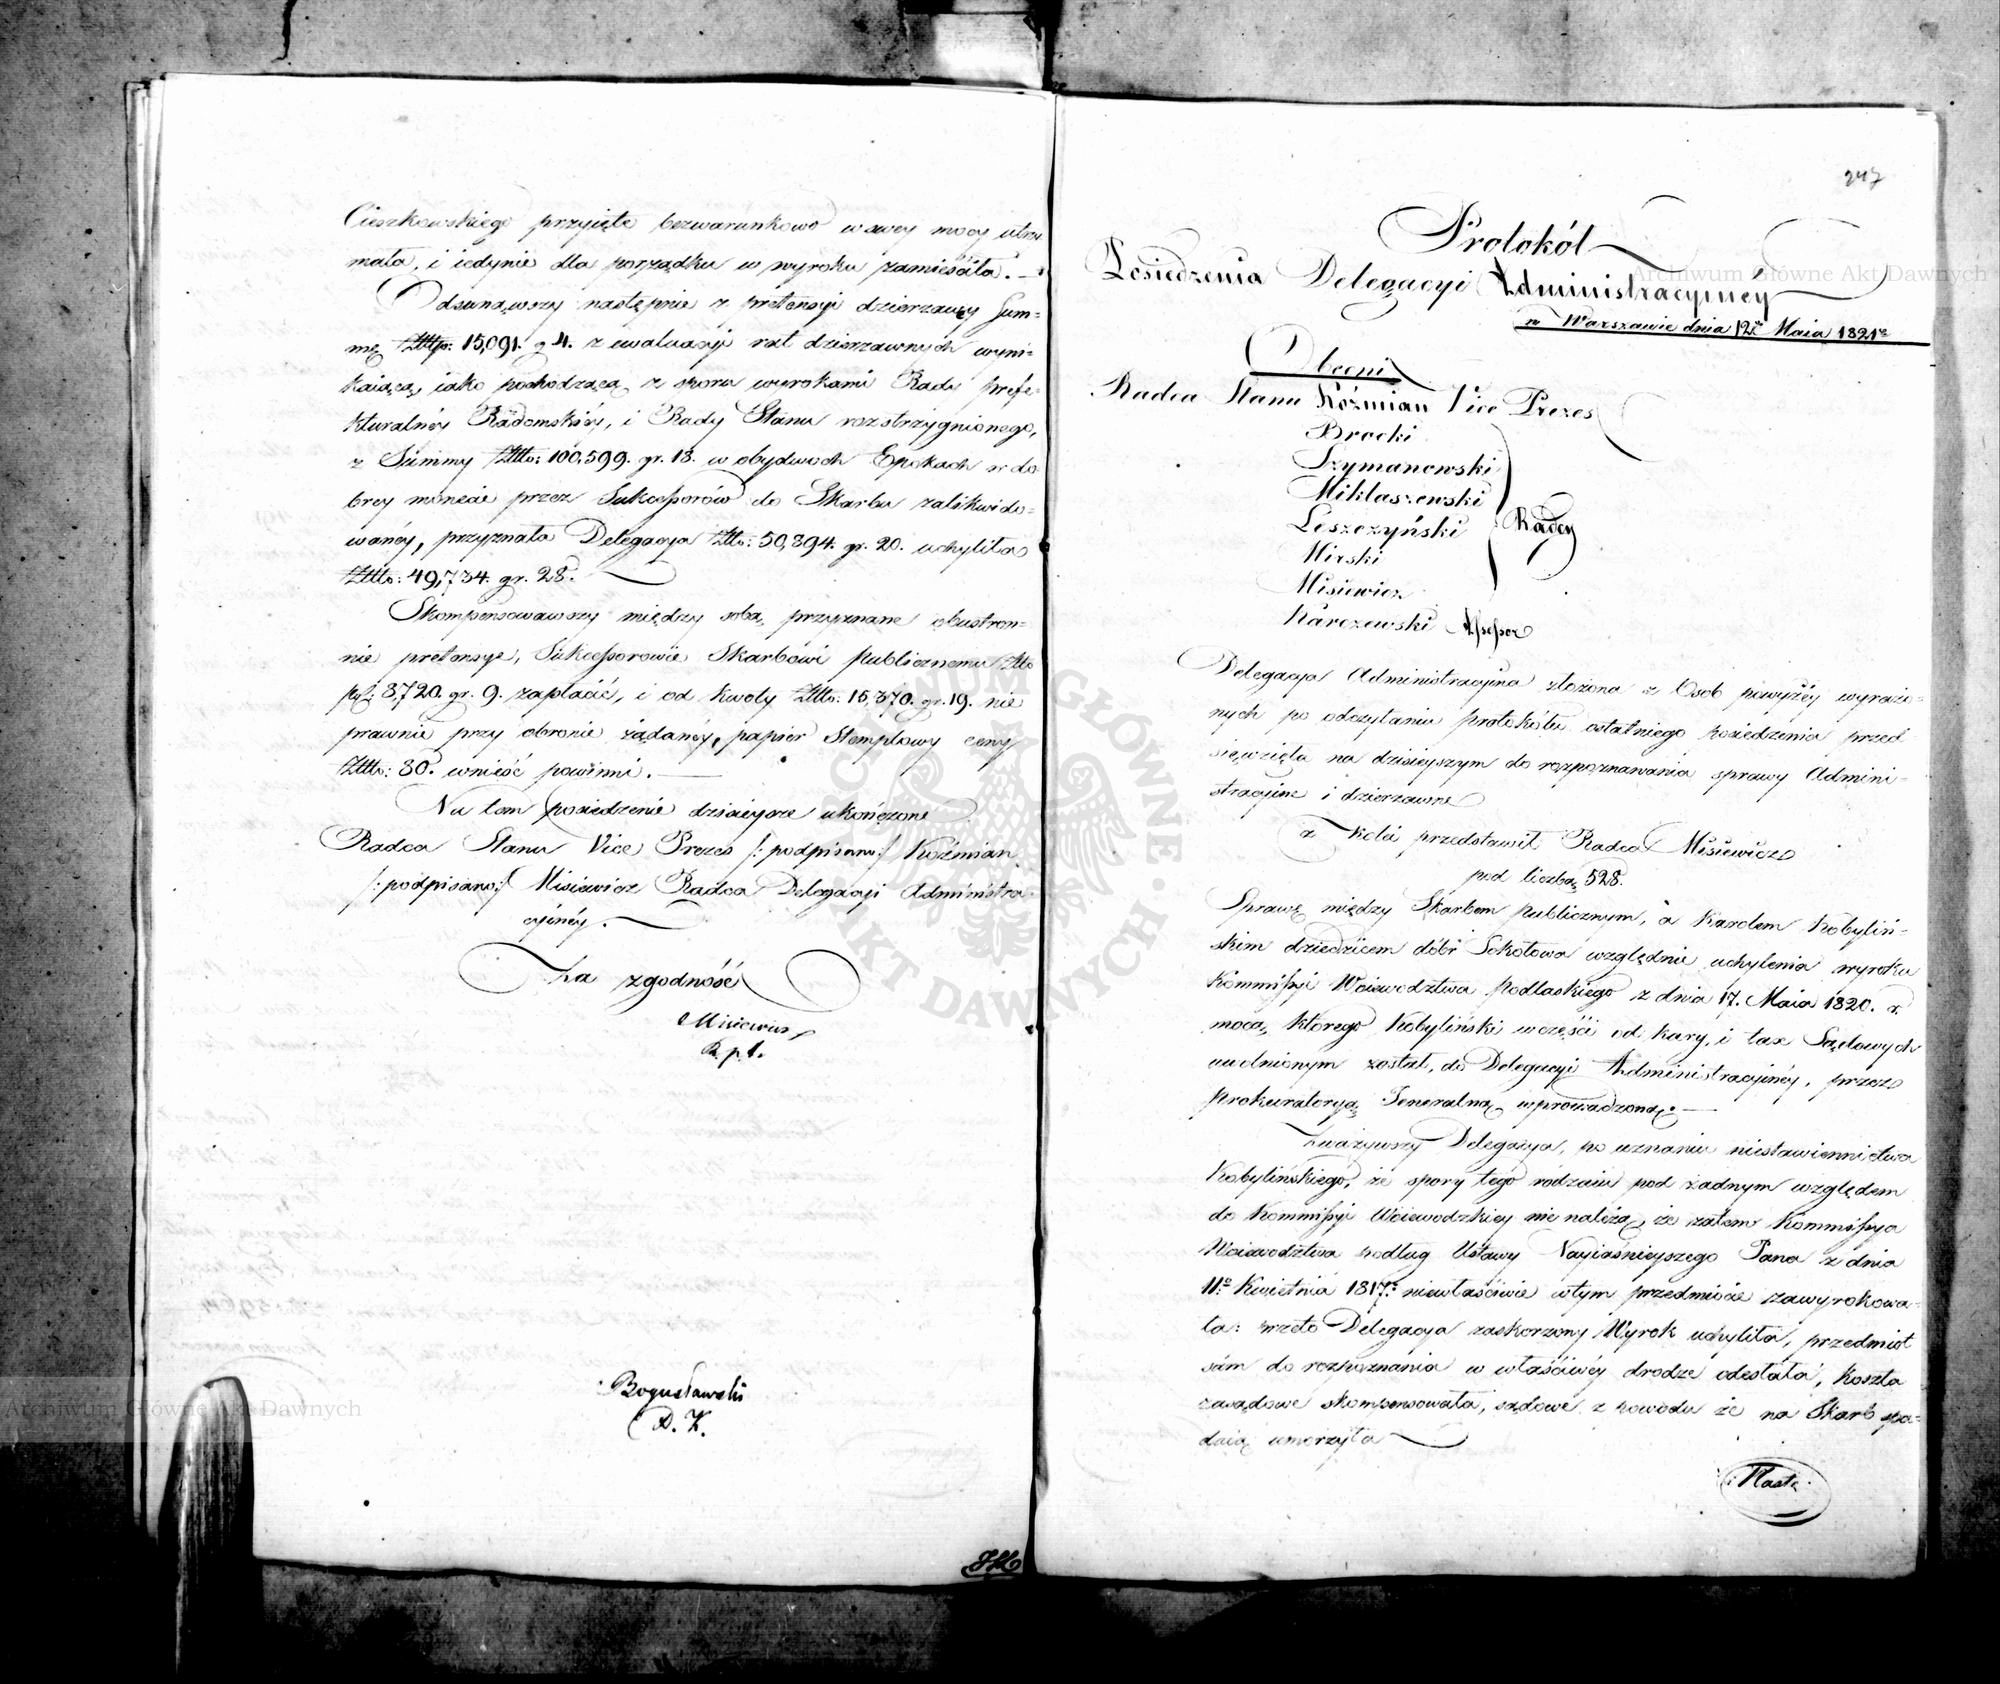 Cieszkowskiego przyięte bezwarunkowo w swey mocy utrzy
mała, i iedynie dla porządku w wyroku zamieściła. —
Odsunąwszy następnie z pretensyi dzierzawcy Sum-
mę Złtp: 15,091. g 4. z ewaluacyi rat dzierzawnych wyni-
kaiącą, iako pochodzącą z sporu wyrokami Rady Prefe-
kturalnéy Radomskiéy, i Rady Stanu rozstrzygnionego,
z Summy Złtto: 100,599. gr. 18. w obydwoch Epokach w do
brey monecie przez Sukcessorów do Skarbu zalikwido-
wanéy, przyznała Delegacya Złtto: 50,894. gr. 20. uchyliła
Złtto: 49,734. gr. 28.
Skompensowawszy między sobą przyznane obustron-
nie pretensye, Sukcessorowie Skarbowi Publicznemu Złto
pol: 8,720. gr. 9. zapłacić, i od kwoty Złtto: 15,370. gr. 19. nie
prawnie przy obronie żądanéy, papier Stemplowy ceny
Złtto: 30. wnieść powinni. —
Na tem posiedzenie dzisieysze ukończone
Radca Stanu Vice Prezes /:podpisano:/ Koźmian
/:podpisano:/ Misiewicz Radca Delegacyi Administra-
cyinéy.
Za zgodność
Misiewicz
R. p. t.
Bogusławski
D. K.
247
Protokół
Posiedzenia Delegacyi Administracyiney
w Warszawie dnia 12go Maia 1821 r.
Obecni
Radca Stanu Koźmian Vice Prezes
Brocki
Szymanowski
Miklaszewski
Leszczyński Radcy
Mirski
Misiewicz
Karczewski Assessor
Delegacya Administracyina złożona z Osob powyżéy wyrażo-
nych po odczytaniu protokółu ostatniego posiedzenia przed-
sięwzięła na dzisieyszym do rozpoznawania sprawy Admini-
stracyine i dzierzawne
z Kolei przedstawił Radca Misiewicz
pod liczbą 528.
Sprawę między Skarbem Publicznym, a Karolem Kobyliń-
skim dziedzicem dóbr Sokołowa względnie uchylenia wyroku
Kommissyi Woiewodztwa Podlaskiego z dnia 17. Maia 1820. r.
mocą którego Kobyliński w części od kary, i tax Sądowych
uwolnionym został, do Delegacyi Administracyinéy, przez
Prokuratoryą Jeneralną wprowadzoną. —
Zważywszy Delegacya, po uznaniu niestawiennictwa
Kobylińskiego, że spory tego rodzaiu pod żadnym względem
do Kommissyi Woiewodzkiey nie należą, że zatem Kommissya
Woiewodztwa podług Ustawy Nayiaśnieyszego Pana z dnia
11go Kwietnia 1817. r. niewłaściwie w tym przedmiocie zawyrokowa-
ła: przeto Delegacya zaskarżony Wyrok uchyliła, przedmiot
sam do rozpoznania w właściwéy drodze odesłała, koszta
zasądowe skompensowała, sądowe z powodu że na Skarb spa-
daią umorzyła